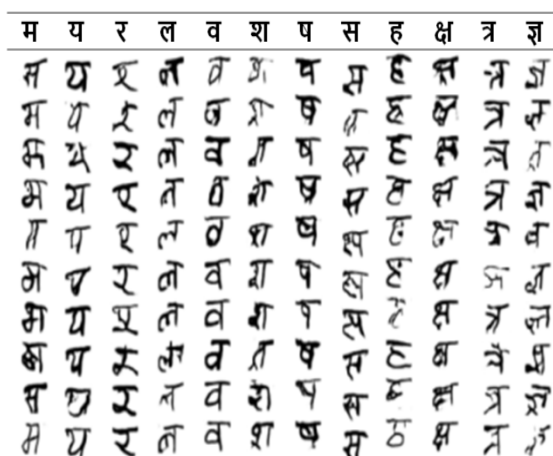 म य र ल व श ष स ह क्ष त्र ज्ञ
म य र ल व श ष स ह क्ष त्र ज्ञ
म य र ल व श ष ह क्ष त्र ज्ञ
म य र ल व श ष स ह क्ष त्र
म य र ल व श ष स ह क्ष त्र ज्ञ
य र ल व श ष स ह क्ष त्र
म य र ल व श ष स ह क्ष ज्ञ
म य र ल व श ष स क्ष त्र ज्ञ
म य र ल व ष स ह क्ष त्र
म र ल व श ष स ह क्ष त्र ज्ञ
म य र ल व श ष स क्ष त्र